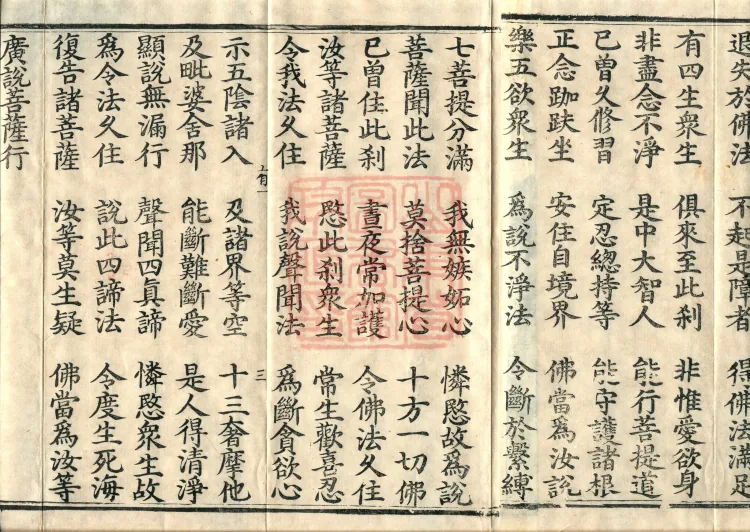 退失於佛法 不起是障者 得佛法滿足
有四生衆生 俱來至此刹 非惟愛欲身
非盡念不淨 是中大智人 能行菩提道
已曾久修習 定忍總持等 能守護諸根
正念跏趺坐 安住自境界 佛當爲汝說
樂五欲衆生 爲說不淨法 令斷於繫縛
七菩提分滿 我無嫉妬心 憐愍故爲說
菩薩聞此法 莫捨菩提心 十方一切佛
已曾住此刹 晝夜常加護 令佛法久住
汝等諸菩薩 愍此刹衆生 常生歡喜忍
令我法久住 我說聲聞法 爲斷貪欲心
有 三
示五陰諸入 及諸界等空 十三奢摩他
及毗婆舍那 能斷難斷愛 是人得清淨
顯說無漏行 聲聞四眞諦 憐愍衆生故
爲令法久住 說此四諦法 令度生死海
復告諸菩薩 汝等莫生疑 佛當爲汝等
廣說菩薩行